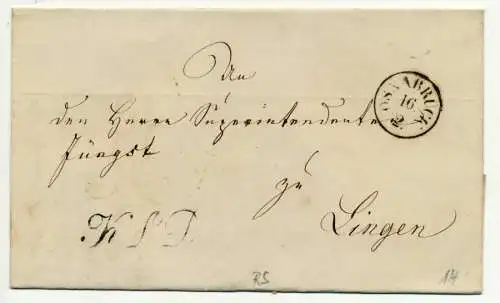 An
OSNABRÜCK
16
2
den Herrn Superintendenten
Jüngst
zu
Lingen
K S D
RS
14